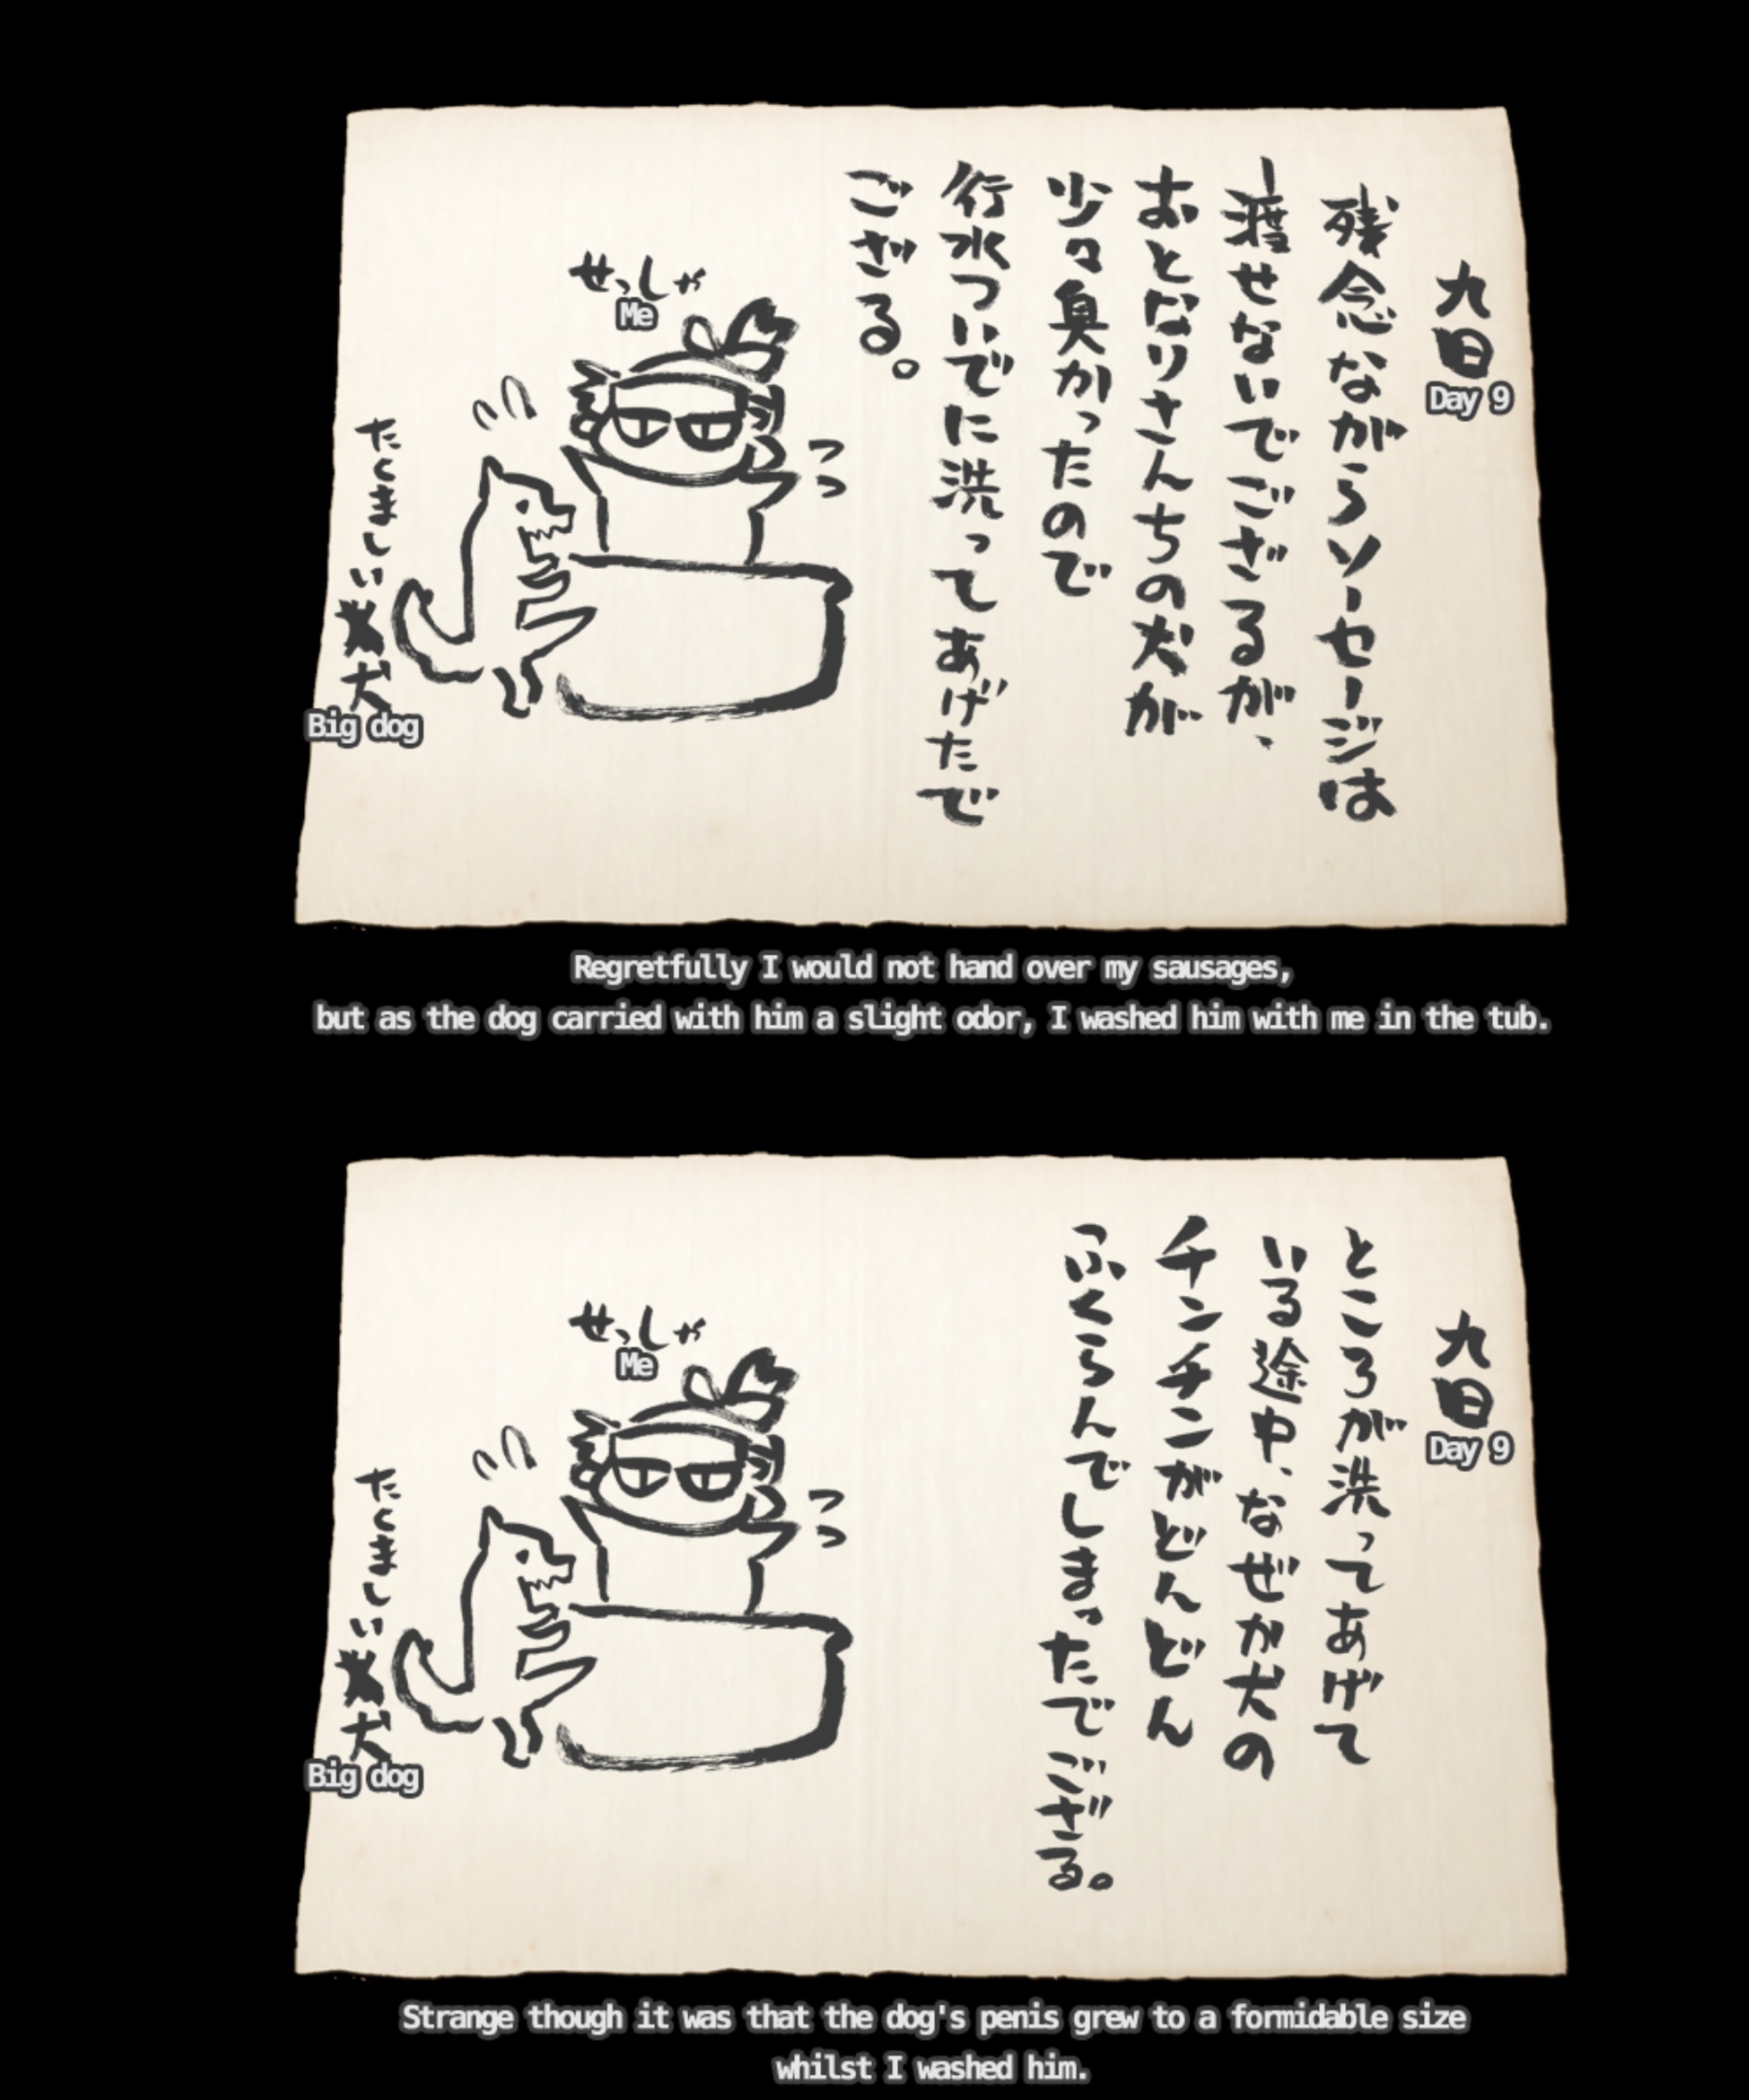 九日
Day 9
残念ながらソーセージは
渡せないでござるが、
おとなりさんちの犬が
少々臭かったので
行水ついでに洗ってあげたで
ござる。
せっしゃ
Me
たくましい
犬
Big dog
Regretfully I would not hand over my sausages,
but as the dog carried with him a slight odor, I washed him with me in the tub.
九日
Day 9
ところが洗ってあげて
いる途中、なぜか犬の
チンチンがどんどん
ふくらんでしまったでござる。
せっしゃ
Me
たくましい
犬
Big dog
Strange though it was that the dog's penis grew to a formidable size
whilst I washed him.